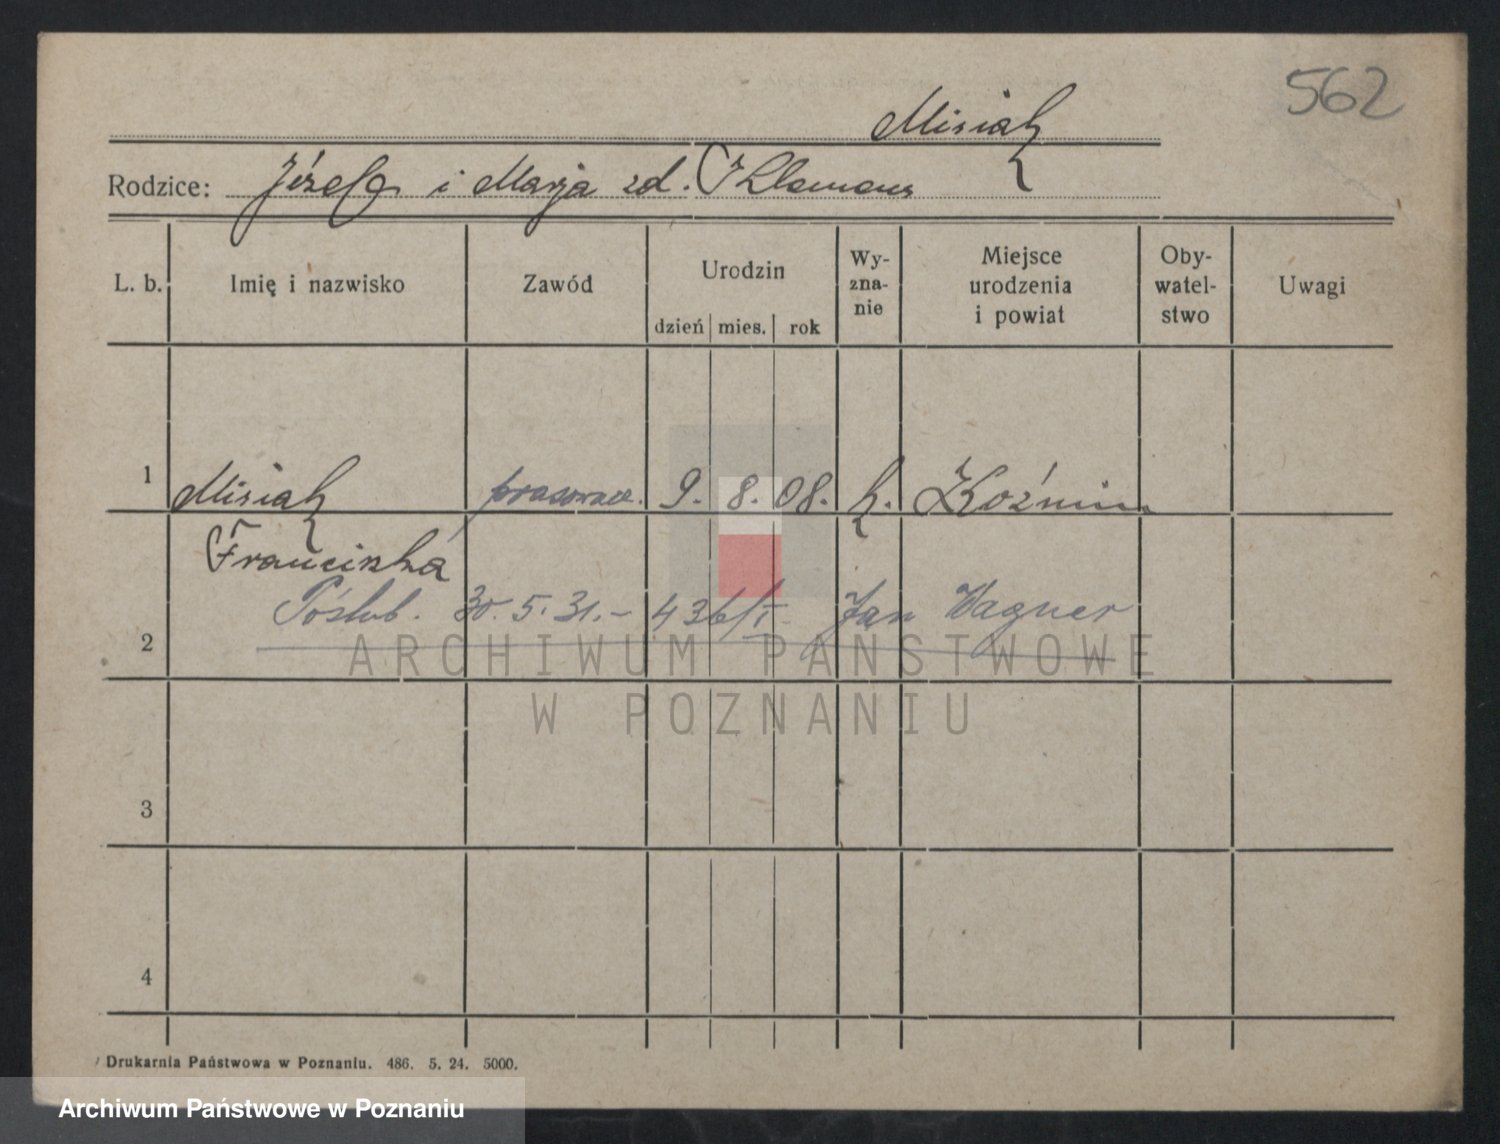 562
Misiak
Rodzice: Józef i Marja zd. Klemens
L. b. Imię i nazwisko Zawód Urodzin dzień mies. rok Wy-zna-nie Miejsce urodzenia i powiat Oby-watel-stwo Uwagi
1 Misiak 9. 8. 08. k. Koźmin
Franciszka
Poślub. 30. 5. 31.- 436/I- Jan Wagner
2
ARCHIWUM PAŃSTWOWE
W POZNANIU
3
4
Drukarnia Państwowa w Poznaniu. 486. 5. 24. 5000.
Archiwum Państwowe w Poznaniu